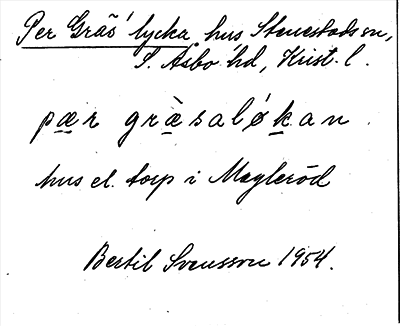 Per Gräs' lycka hus Stenestads sn,
S. Åsbo hd, Krist. l.
pær græ̀saløkan.
hus el. torp i Magleröd
Bertil Svensson 1954.